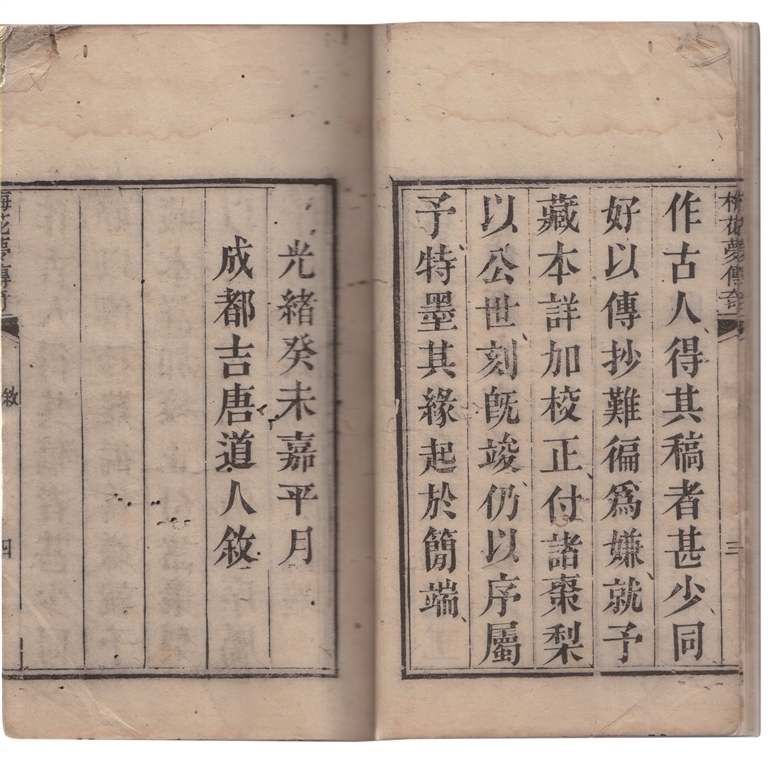 梅花夢傳奇
三
作古人得其稿者甚少同
好以傳抄難徧爲嫌就予
藏本詳加校正付諸棗梨
以公世刻旣竣仍以序屬
予特墨其緣起於簡端
光緒癸未嘉平月
成都吉唐道人敘
梅花夢傳奇
敘
四